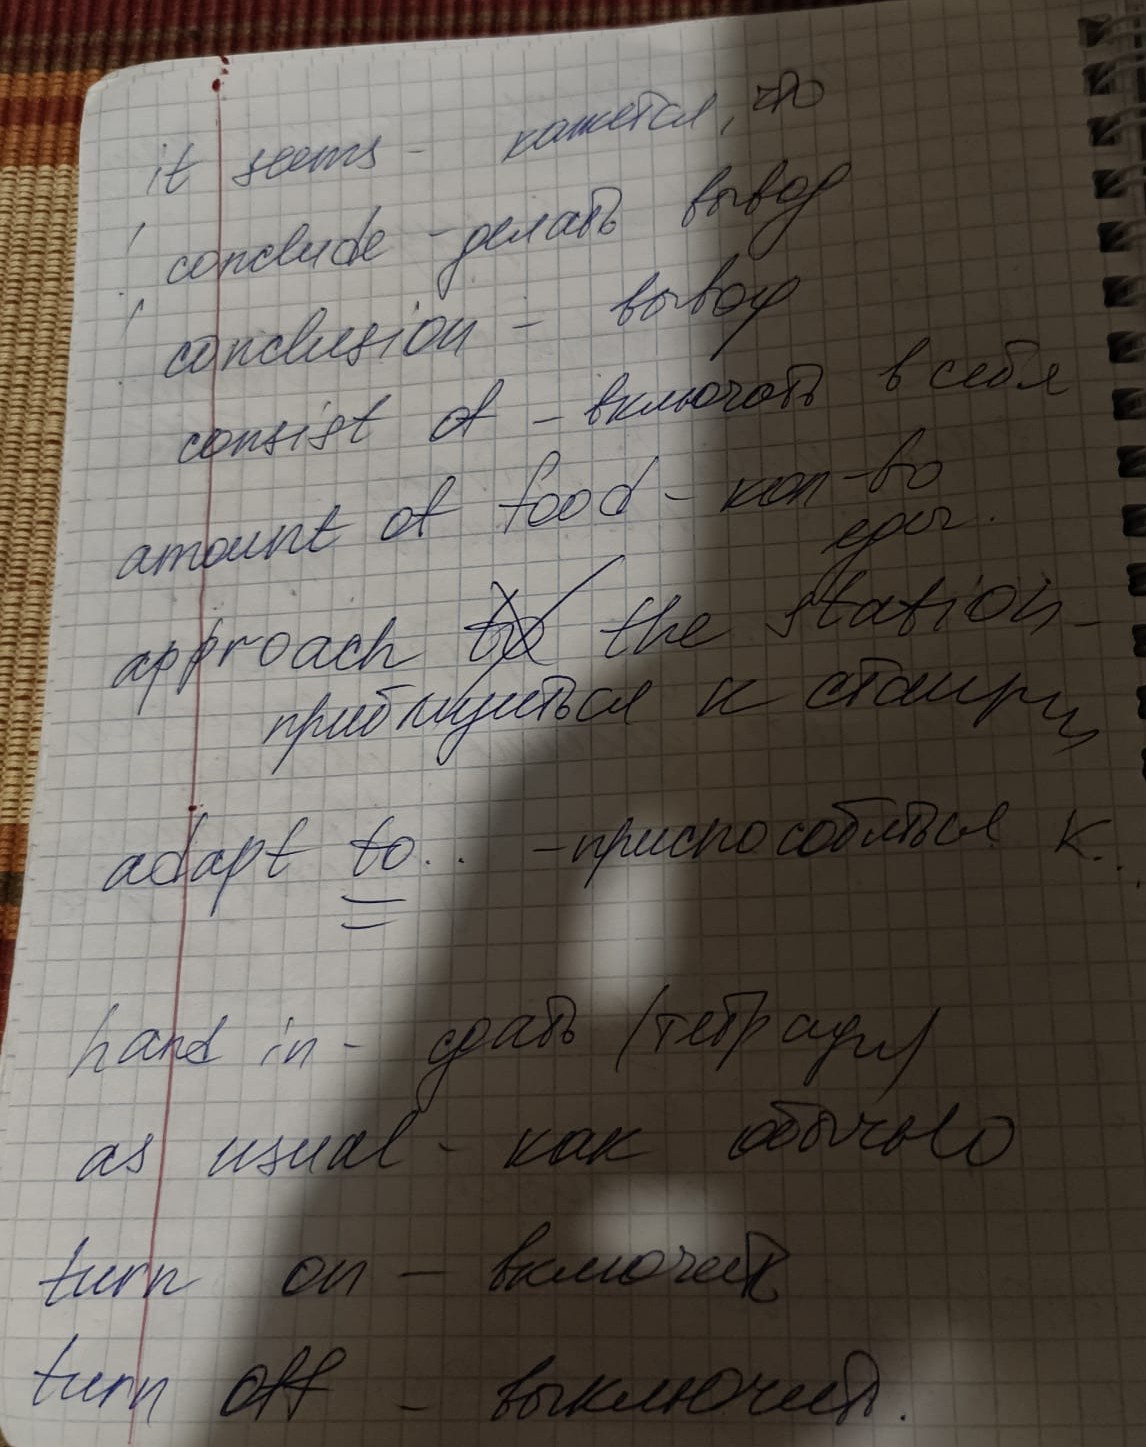 it seems - кажется, что
! conclude - делать вывод
! conclusion - вывод
consist of - включать в себя
amount of food - кол-во
еды.
approach to the station -
приблизиться к станции
adapt to.. - приспособиться к..
hand in - сдать (тетради)
as usual - как обычно
turn on - включить
turn off - выключить.